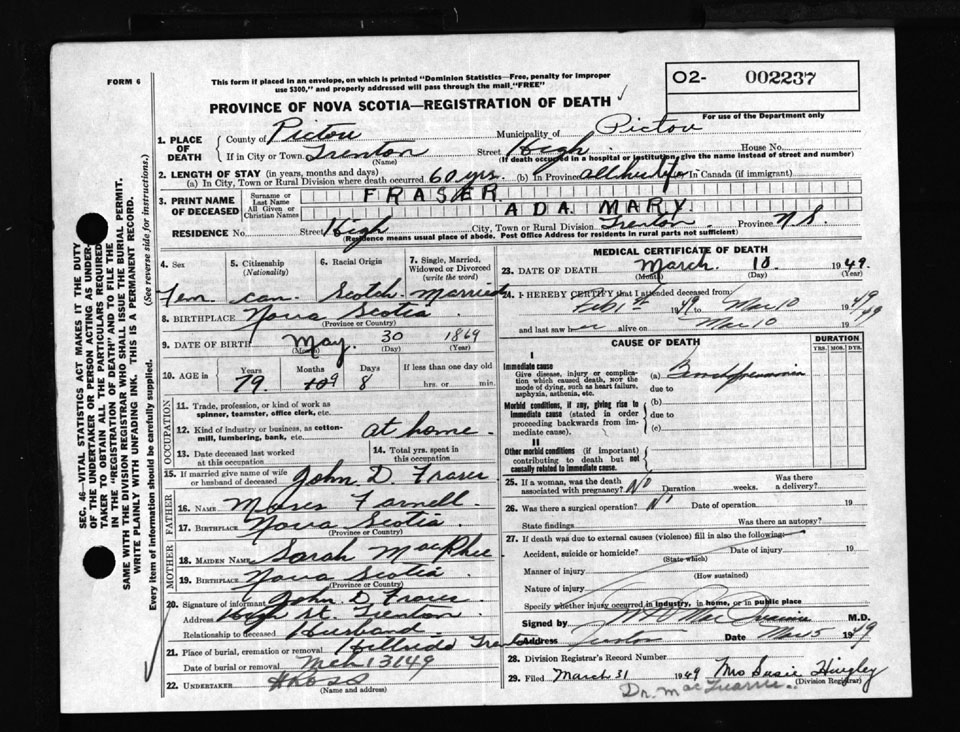 FORM 6
This form if placed in an envelope, on which is printed "Dominion Statistics—Free, penalty for improper
use $300," and properly addressed will pass through the mail "FREE"
O2- 002237
For use of the Department only
PROVINCE OF NOVA SCOTIA—REGISTRATION OF DEATH
1. PLACE OF DEATH
County of Pictou Municipality of Pictou
If in City or Town Trenton Street High House No.
(Name) (If death occurred in a hospital or institution, give the name instead of street and number)
2. LENGTH OF STAY (in years, months and days)
(a) In City, Town or Rural Division where death occurred 60 yrs. (b) In Province all her life In Canada (if immigrant)
3. PRINT NAME OF DECEASED
Surname or Last Name FRASER
All Given or Christian Names ADA MARY
RESIDENCE No. Street High City, Town or Rural Division Trenton Province N.S
(Residence means usual place of abode. Post Office Address for residents in rural parts not sufficient)
4. Sex 5. Citizenship (Nationality) 6. Racial Origin 7. Single, Married, Widowed or Divorced (write the word)
Fem can. Scotch Married
8. BIRTHPLACE Nova Scotia
(Province or Country)
9. DATE OF BIRTH May 30 1869
(Month) (Day) (Year)
10. AGE in Years Months Days If less than one day old
79 9 8 hrs. or min.
OCCUPATION
11. Trade, profession, or kind of work as spinner, teamster, office clerk, etc.
12. Kind of industry or business, as cotton-mill, lumbering, bank, etc. at home
13. Date deceased last worked at this occupation
14. Total yrs. spent in this occupation
15. If married give name of wife or husband of deceased John D Fraser
FATHER
16. NAME Moses Farnell
17. BIRTHPLACE Nova Scotia
(Province or Country)
MOTHER
18. MAIDEN NAME Sarah MacPhee
19. BIRTHPLACE Nova Scotia
(Province or Country)
20. Signature of informant John D Fraser
Address High St. Trenton
Relationship to deceased Husband
21. Place of burial, cremation or removal Hillside
Date of burial or removal Mch 13/49
22. UNDERTAKER H Ross
(Name and address)
MEDICAL CERTIFICATE OF DEATH
23. DATE OF DEATH March 10 1949
(Month) (Day) (Year)
24. I HEREBY CERTIFY that I attended deceased from:
Feb 1st 1949 to Mar 10 1949
and last saw her alive on Mar 10 1949
CAUSE OF DEATH
DURATION
YRS. MOS. DYS.
I
Immediate cause
Give disease, injury or complication which caused death, NOT the mode of dying, such as heart failure, asphyxia, asthenia, etc.
(a) Bronchopneumonia
due to
Morbid conditions, if any, giving rise to immediate cause (stated in order proceeding backwards from immediate cause).
(b)
due to
(c)
II
Other morbid conditions (if important) contributing to death but not causally related to immediate cause.
25. If a woman, was the death associated with pregnancy? No Duration weeks. Was there a delivery?
26. Was there a surgical operation? No Date of operation 19
State findings Was there an autopsy?
27. If death was due to external causes (violence) fill in also the following:
Accident, suicide or homicide? Date of injury 19
(State which)
Manner of injury
(How sustained)
Nature of injury
Specify whether injury occurred in industry, in home, or in public place
Signed by M.D.
Address Trenton Date Mar 15 1949
28. Division Registrar's Record Number
29. Filed March 31 1949 Mrs Susie Hingley
(Division Registrar)
SEC. 46—VITAL STATISTICS ACT MAKES IT THE DUTY
OF THE UNDERTAKER OR PERSON ACTING AS UNDER-
TAKER TO OBTAIN ALL THE PARTICULARS REQUIRED
IN THE "REGISTRATION OF DEATH" AND TO FILE THE
SAME WITH THE DIVISION REGISTRAR WHO SHALL ISSUE THE BURIAL PERMIT.
WRITE PLAINLY WITH UNFADING INK. THIS IS A PERMANENT RECORD.
Every item of information should be carefully supplied. (See reverse side for instructions.)